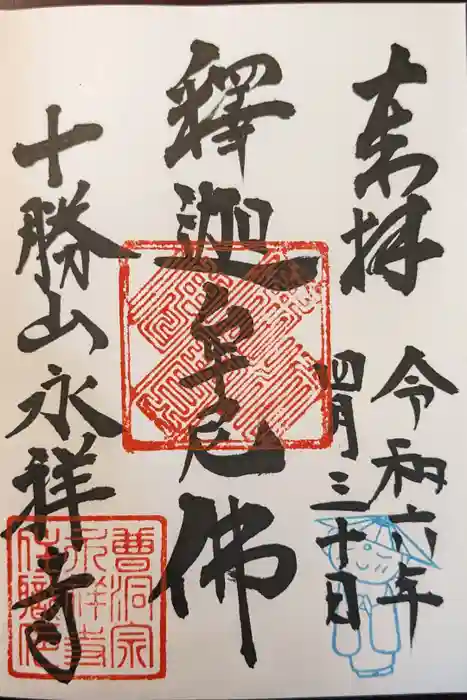 奉拝
令和六年
四月三十日
釋迦牟尼佛
十勝山永祥寺
曹洞宗
永祥寺
住職印